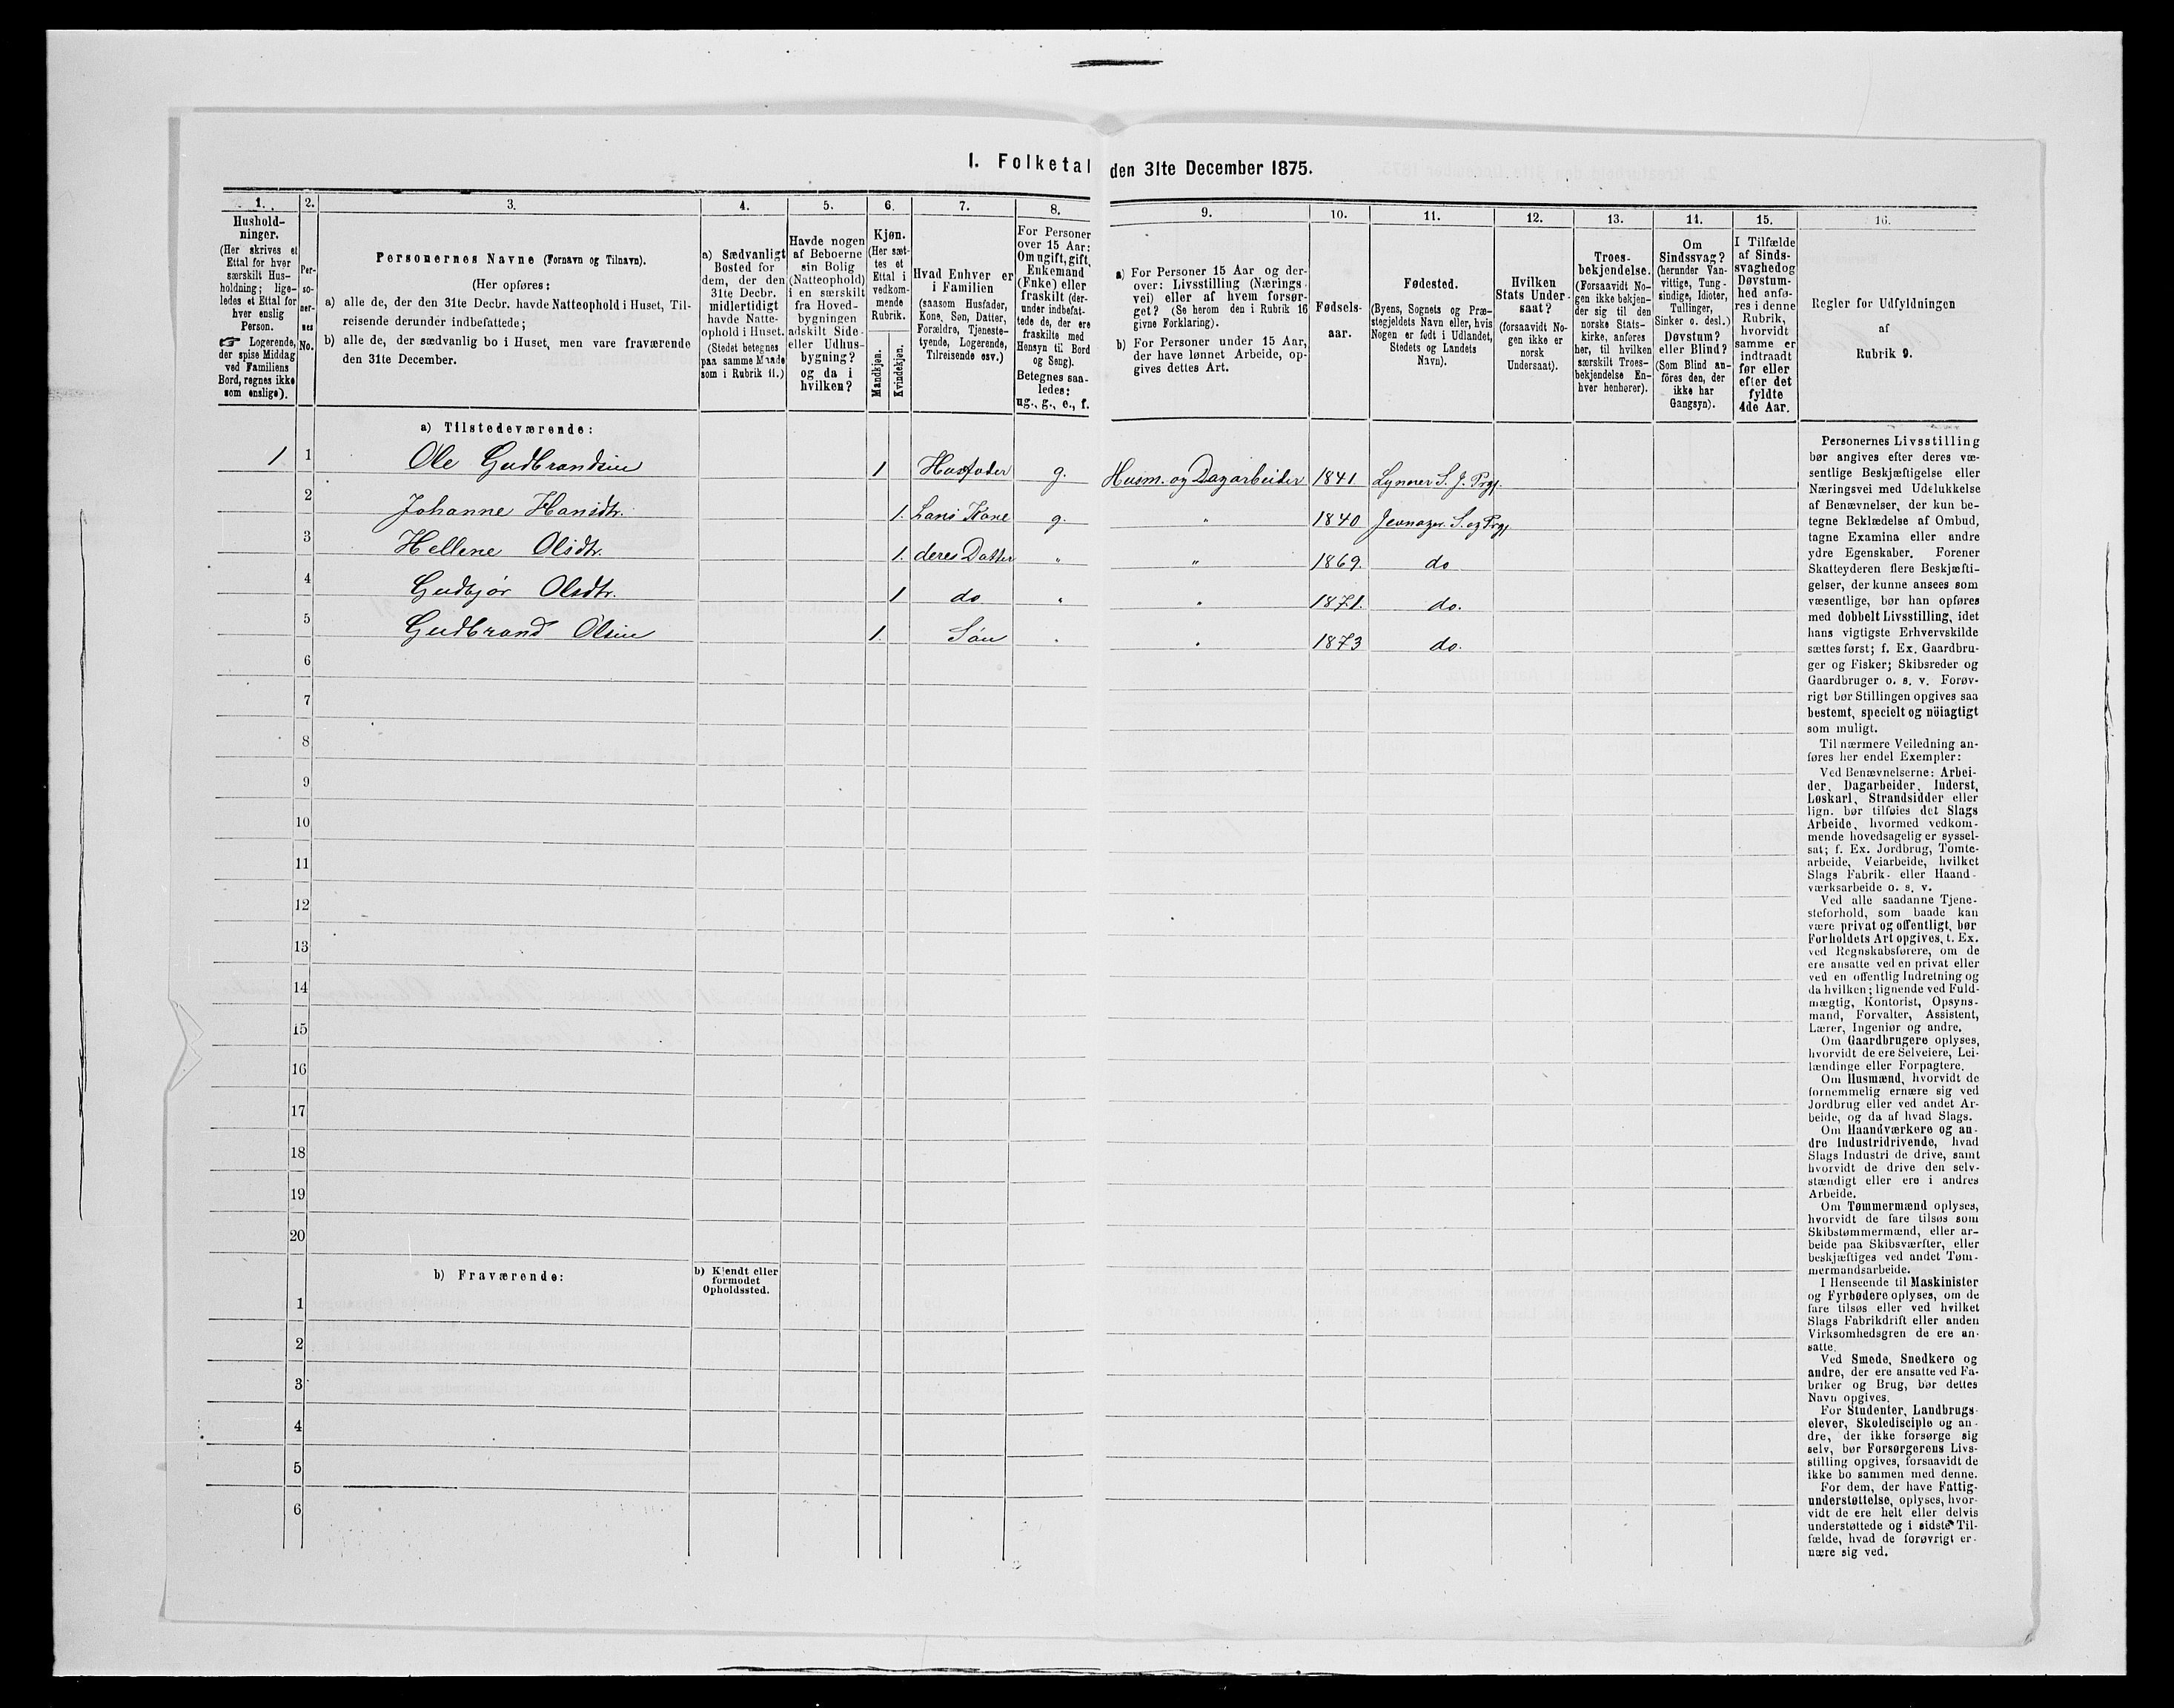 1. Folketal den 31te December 1875.
1. 2. 3. 4. 5. 6. 7. 8. 9. 10. 11. 12. 13. 14. 15. 16.
Hushold-
ninger.
(Her skrives et
Ettal for hver
særskilt Hus-
holdning; lige-
ledes et Ettal for
hver enslig
Person.
☞ Logerende,
der spise Middag
ved Familiens
Bord, regnes ikke
som enslige).
Per-
so-
ner-
nes
No.
Personernes Navne (Fornavn og Tilnavn).
(Her opføres:
a) alle de, der den 31te Decbr. havde Natteophold i Huset, Til-
reisende derunder indbefattede;
b) alle de, der sædvanlig bo i Huset, men vare fraværende
den 31te December.
a) Sædvanligt
Bosted for
dem, der den
31te Decbr.
midlertidigt
havde Natte-
ophold i Huset.
(Stedet betegnes
paa samme Maade
som i Rubrik 11.)
Havde nogen
af Beboerne
sin Bolig
(Natteophold)
i en særskilt
fra Hoved-
bygningen
adskilt Side-
eller Udhus-
bygning?
og da i
hvilken?
Kjøn.
(Her sæt-
tes et
Ettal i
vedkom-
mende
Rubrik.
Mandkjøn.
Kvindekjøn.
Hvad Enhver er
i Familien
(saasom Husfader,
Kone, Søn, Datter,
Forældre, Tjeneste-
tyende, Logerende,
Tilreisende osv.)
For Personer
over 15 Aar:
Om ugift, gift,
Enkemand
(Enke) eller
fraskilt (der-
under indbefat-
tede de, der ere
fraskilte med
Hensyn til Bord
og Seng).
Betegnes saa-
ledes:
ug., g., e., f.
a) For Personer 15 Aar og der-
over: Livsstilling (Nærings-
vei) eller af hvem forsør-
get? (Se herom den i Rubrik 16
givne Forklaring).
b) For Personer under 15 Aar,
der have lønnet Arbeide, op-
gives dettes Art.
Fødsels-
aar.
Fødested.
(Byens, Sognets og Præ-
stegjeldets Navn eller, hvis
Nogen er født i Udlandet,
Stedets og Landets
Navn).
Hvilken
Stats Under-
saat?
(forsaavidt No-
gen ikke er
norsk
Undersaat).
Troes-
bekjendelse.
(Forsaavidt No-
gen ikke bekjen-
der sig til den
norske Stats-
kirke, anføres
her, til hvilken
særskilt Troes-
bekjendelse En-
hver henhører).
Om
Sindssvag?
(herunder Van-
vittige, Tung-
sindige, Idioter,
Tullinger,
Sinker o. desl.)
Døvstum?
eller Blind?
(Som Blind an-
føres den, der
ikke har
Gangsyn).
I Tilfælde
af Sinds-
svaghed og
Døvstum-
hed anfø-
res i denne
Rubrik,
hvorvidt
samme er
indtraadt
før eller
efter det
fyldte
4de Aar.
Regler for Udfyldningen
af
Rubrik 9.
a) Tilstedeværende:
1 1 Ole Gudbrandsen 1 Husfader g. Husm. og Dagarbeider 1841 Lynner S. J. Prgj.
2 Johanne Hansdtr. 1. hans Kone g. " 1840 Jevnager S. og Prgj
3 Hellene Olsdtr. 1. deres Datter " " 1869. do
4 Gudbjør Olsdtr. 1 do " " 1871. do.
5 Gudbrand Olsen 1. Søn " " 1873 do.
6
7
8
9
10
11
12
13
14
15
16
17
18
19
20
b) Fraværende:
b) Kjendt eller
formodet
Opholdssted.
1
2
3
4
5
6
Personernes Livsstilling
bør angives efter deres væ-
sentlige Beskjæftigelse eller
Næringsvei med Udelukkelse
af Benævnelser, der kun be-
tegne Beklædelse af Ombud,
tagne Examina eller andre
ydre Egenskaber. Forener
Skatteyderen flere Beskjæfti-
gelser, der kunne ansees som
væsentlige, bør han opføres
med dobbelt Livsstilling, idet
hans vigtigste Erhvervskilde
sættes først; f. Ex. Gaardbru-
ger og Fisker; Skibsreder og
Gaardbruger o. s. v. Forøv-
rigt bør Stillingen opgives saa
bestemt, specielt og nöiagtigt
som muligt.
Til nærmere Veiledning an-
føres her endel Exempler:
Ved Benævnelserne: Arbei-
der, Dagarbeider, Inderst,
Løskarl, Strandsidder eller
lign. bør tilføies det Slags
Arbeide, hvormed vedkom-
mende hovedsagelig er syssel-
sat; f. Ex. Jordbrug, Tomte-
arbeide, Veiarbeide, hvilket
Slags Fabrik- eller Haand-
værksarbeide o. s. v.
Ved alle saadanne Tjene-
steforhold, som baade kan
være privat og offentligt, bør
Forholdets Art opgives, t. Ex.
ved Regnskabsførere, om de
ere ansatte ved en privat eller
ved en offentlig Indretning og
da hvilken; lignende ved Fuld-
mægtig, Kontorist, Opsyns-
mand, Forvalter, Assistent,
Lærer, Ingeniør og andre.
Om Gaardbrugere oplyses,
hvorvidt de ere Selveiere, Lei-
lændinge eller Forpagtere.
Om Husmænd, hvorvidt de
fornemmelig ernære sig ved
Jordbrug eller ved andet Ar-
beide, og da af hvad Slags.
Om Haandværkere og an-
dre Industridrivende, hvad
Slags Industri de drive, samt
hvorvidt de drive den selv-
stændigt eller ere i andres
Arbeide.
Om Tømmermænd oplyses,
hvorvidt de fare tilsøs som
Skibstømmermænd, eller ar-
beide paa Skibsværfter, eller
beskjæftiges ved andet Tøm-
mermandsarbeide.
I Henseende til Maskinister
og Fyrbødere oplyses, om de
fare tilsøs eller ved hvilket
Slags Fabrikdrift eller anden
Virksomhedsgren de ere an-
satte.
Ved Smede, Snedkere og
andre, der ere ansatte ved Fa-
briker og Brug, bør dettes
Navn opgives.
For Studenter, Landbrugs-
elever, Skoledisciple og an-
dre, der ikke forsørge sig
selv, bør Forsørgerens Livs-
stilling opgives, forsaavidt de
ikke bo sammen med denne.
For dem, der have Fattig-
understøttelse, oplyses, hvor-
vidt de ere helt eller delvis
understøttede og i sidste Til-
fælde, hvad de forøvrigt er-
nære sig ved.